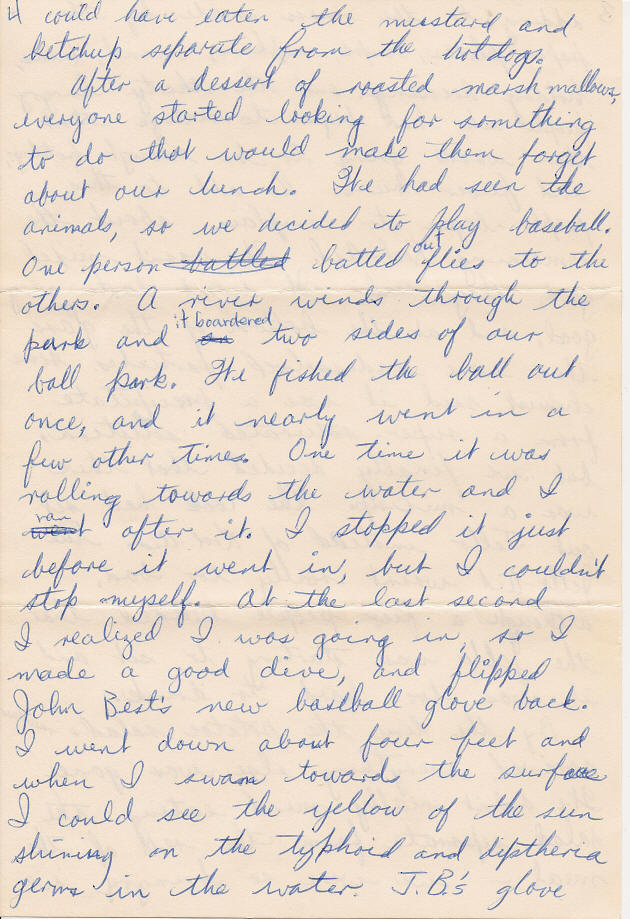 4 could have eaten the mustard and
ketchup separate from the hot dogs.
After a dessert of roasted marshmallows,
everyone started looking for something
to do that would make them forget
about our lunch. We had seen the
animals, so we decided to play baseball.
One person battled batted out flies to the
others. A river winds through the
park and it boardered two sides of our
ball park. We fished the ball out
once, and it nearly went in a
few other times. One time it was
rolling towards the water and I
went ran after it. I stopped it just
before it went in, but I couldn't
stop myself. At the last second
I realized I was going in, so I
made a good dive, and flipped
John Best's new baseball glove back.
I went down about four feet and
when I swam towards the surface
I could see the yellow of the sun
shining on the typhoid and diptheria
germs in the water. J.B.'s glove